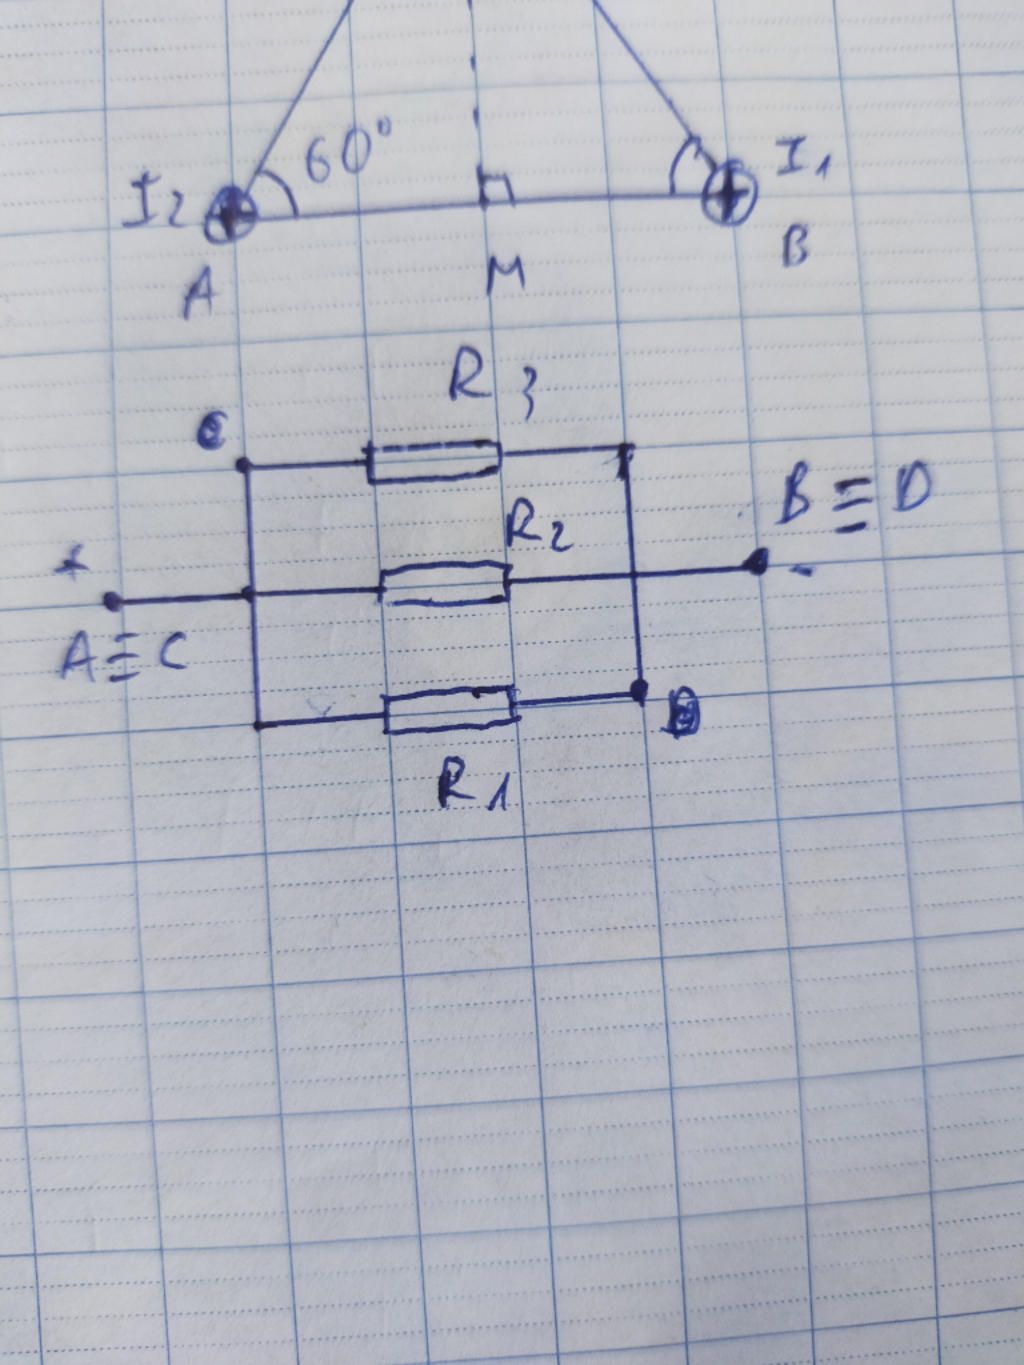 60°
I2
I1
A
M
B
R3
C
R2
B ≡ D
+
-
A ≡ C
D
R1